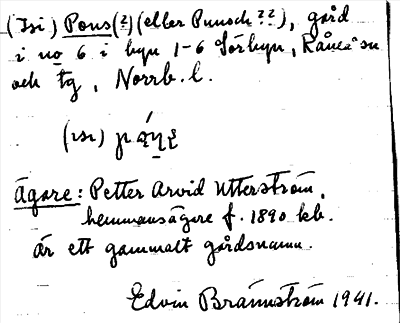 (Isi) Pons(?) (eller Punsch??), gård
i no 6 i byn 1-6 Sörbyn, Råneå sn
och tg, Norrb. l.
(ısı)
Ägare: Petter Arvid Utterström,
hemmansägare f. 1890 kb.
Är ett gammalt gårdsnamn.
Edvin Brännström 1941.